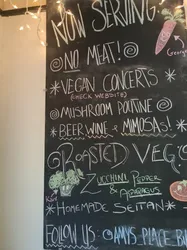 NOW SERVING:
NO MEAT!
George
VEGAN CONCERTS
(CHECK WEBSITE)
MUSHROOM POUTINE
BEER WINE & MIMOSAS!
ROASTED VEG'S
ZUCCHINI, PEPPER
& ASPARAGUS
HOMEMADE SEITAN
FOLLOW US: @AMYS_PLACE_B